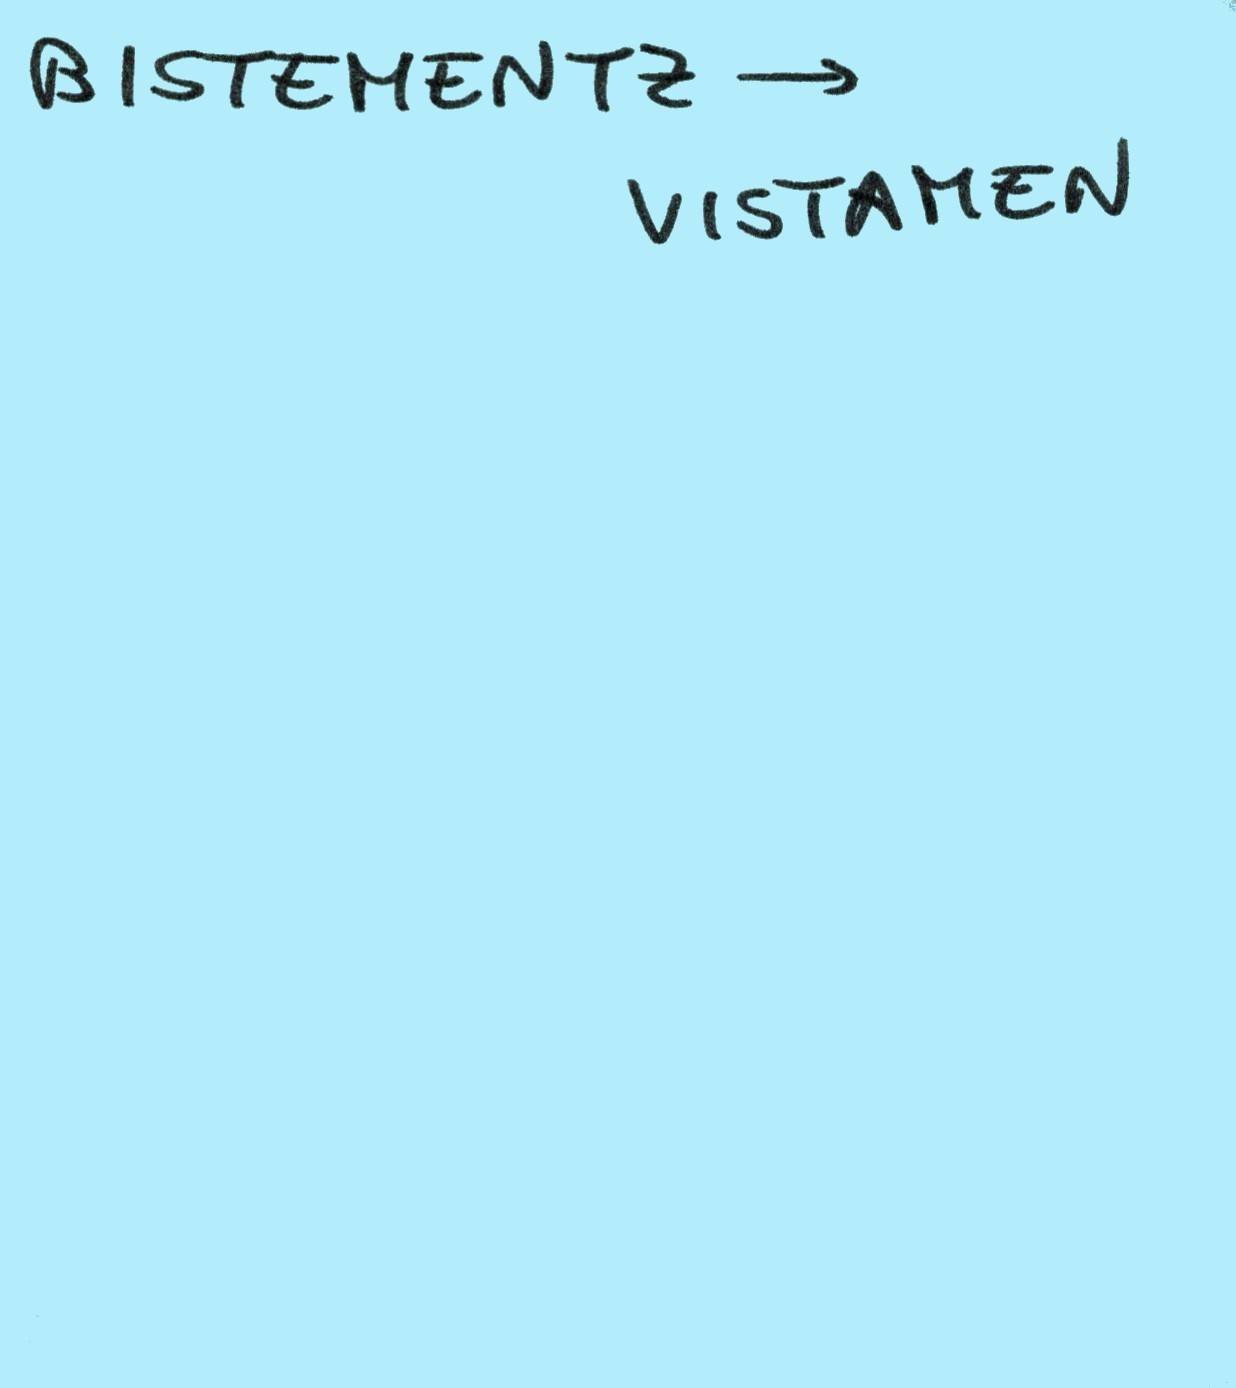 BISTEMENTZ →
VISTAMEN